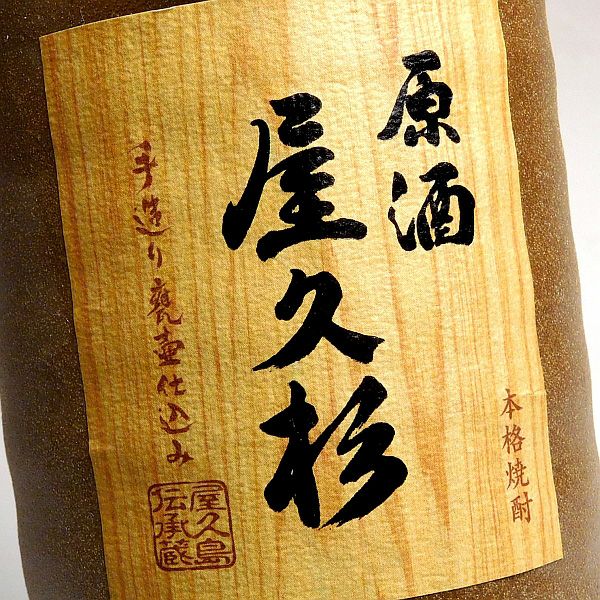 原酒
屋久杉
本格焼酎
手造り甕壷仕込み
屋久島
伝承蔵